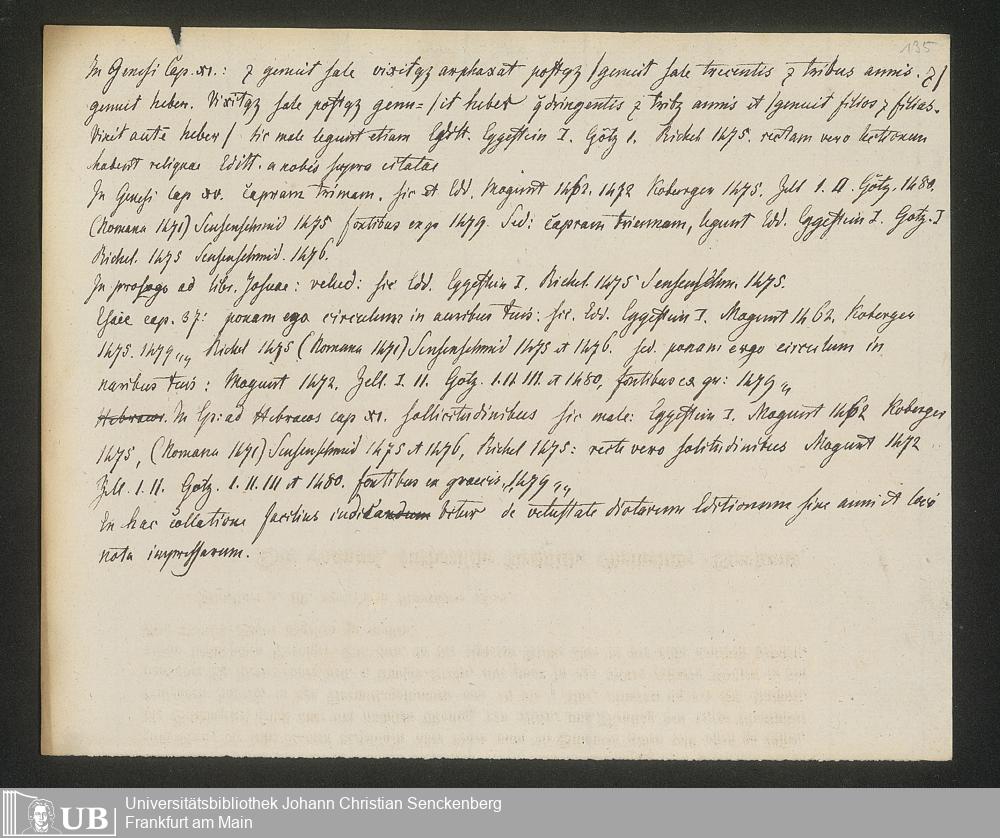 135
In Genesi Cap. xi.: ⁊ genuit sale vixitqz arphaxat postqz / genuit sale trecentis ⁊ tribus annis. ⁊ /
genuit heber. Vixitqz sale postqz genu= / it heber q̃dringentis ⁊ tritz annis et / genuit filios ⁊ filias.
Vixit aute heber / sic male legunt etiam Editt. Eggestein I. Götz I. Richel 1475. rectam vero lectionem
habent reliquae Editt. a nobis supra citatae
In Genesi Cap xv. Capram trimam. sic et Edd. Mogunt 1462. 1472 Koberger 1475. Zell I. II. Götz. 1480.
(Romana 1471) Sensenschmid 1475 fontibus ex gr 1479. Sed: Capram triennam, legunt Edd. Eggestein I. Götz. I
Richel. 1475 Sensenschmid. 1476.
In prologo ad libr. Josuae: velud: sic Edd. Eggestein I. Richel 1475 Sensenschm. 1475.
Esaie cap. 37: ponam ergo circulum in auribus tuis: sic. Edd. Eggestein I. Mogunt 1462. Koberger
1475. 1479,,,, Richel 1475 (Romana 1471) Sensenschmid 1475 et 1476. sed. ponam ergo circulum in
naribus tuis: Mogunt 1472. Zell. I. II. Götz. I. II. III. et 1480, fontibus ex gr: 1479,,
Hebraeos. In Ep: ad Hebraeos cap xi. sollicitudinibus sic male: Eggestein I. Mogunt 1462 Koberger
1475, (Romana 1471) Sensenschmid 1475 et 1476, Richel 1475: recte vero solitudinibus Mogunt 1472
Zell. I. II. Götz. I. II. III et 1480. fontibus ex graecis,, 1479,,,,
En hac Collatione facilius indicandum betur de vetustate diotarum Editionum sine anni et loci
nota impressarum.
UB
Universitätsbibliothek Johann Christian Senckenberg
Frankfurt am Main